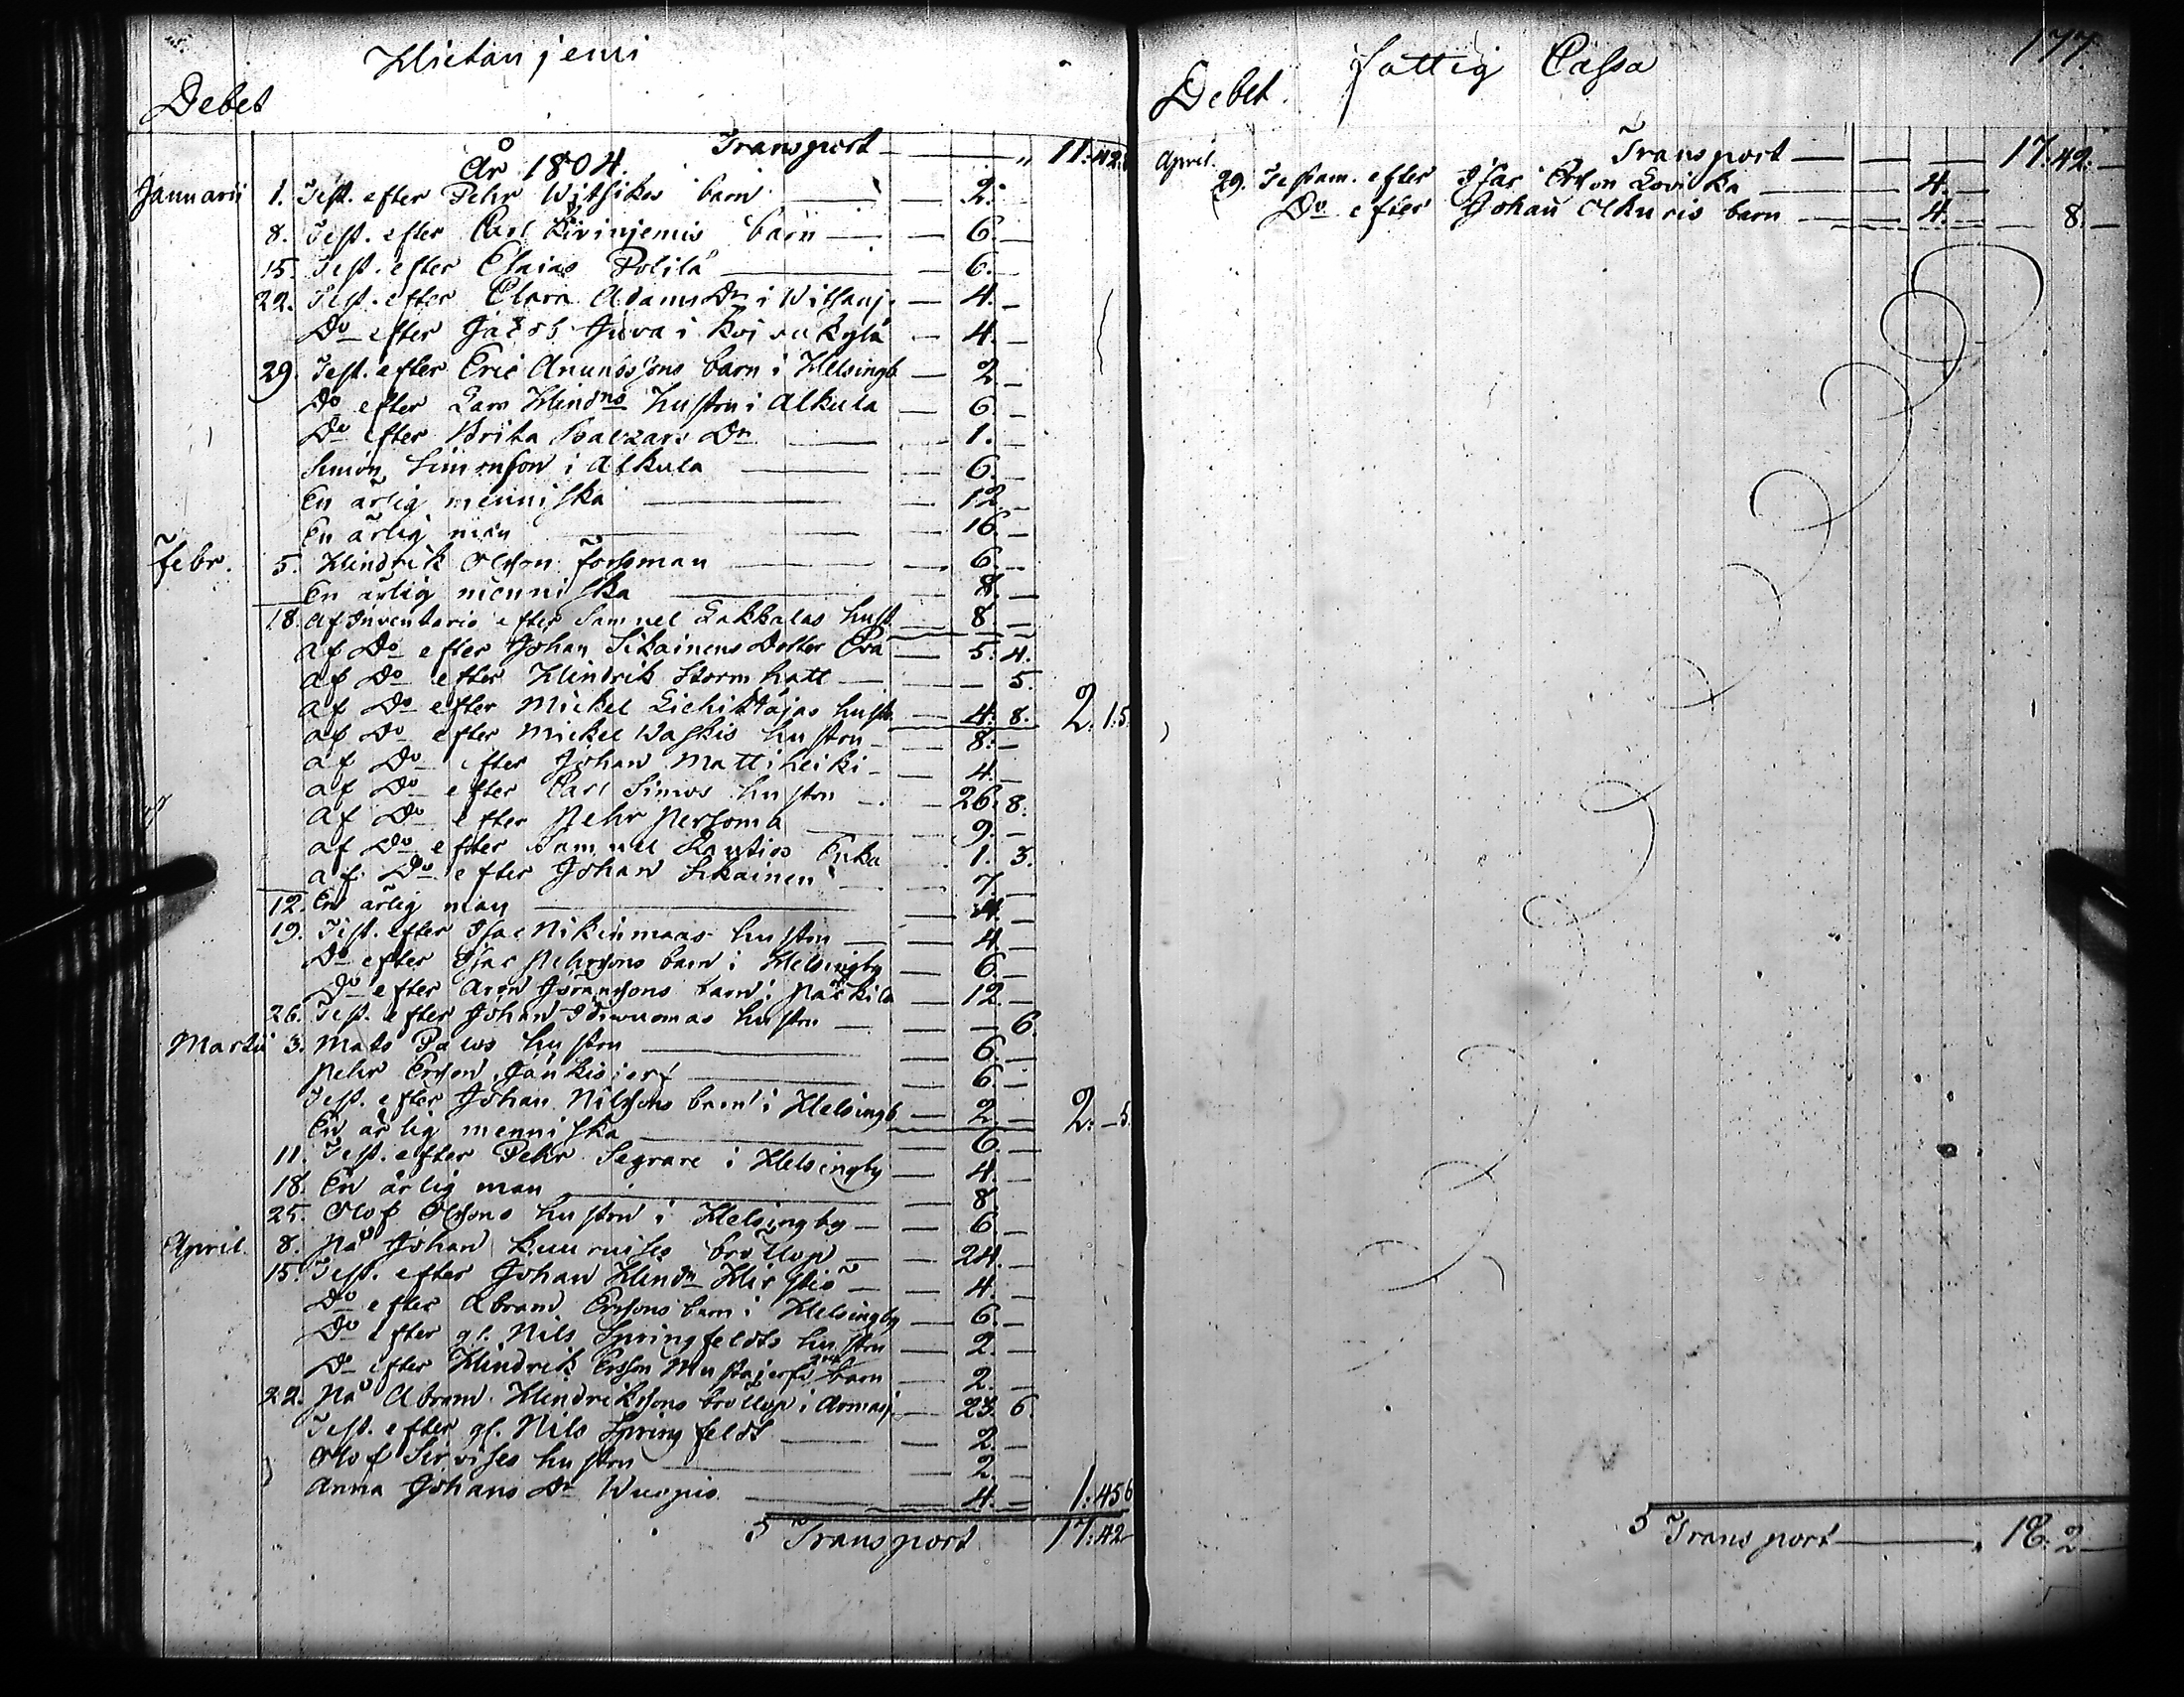 Hietaniemi
Debet
År 1804. Transport — " 11:42.
Januarii 1. Test. efter Pehr barn — 2. —
8. Test. efter Carl Kivinjemis barn — 6. —
15. Test. efter Esaias Polila — 6. —
22. Test. efter Clara Adams Dr i Witsanj. — 4. —
Do efter Jacob Juva i Koivukylä — 4. —
29. Test. efter Eric Anundssons barn i Helsingb — 2. —
Do efter Lars Hindns hustru i Alkula — 6. —
Do efter Brita Balzars Dr — 1. —
Simon Simonson i Alkula — 6. —
En ärlig menniska — 12. —
En ärlig man — 16. —
Febr. 5. Hindrik Olsson Forssman — 6. —
En ärlig menniska — 8. —
18. Af Inventario efter Samuel Lakkalas hust — 8. —
af Do efter Johan Sikainens Dotter Eva — 5. 4.
af Do efter Hindrik Stormhatt — — 5.
af Do efter Mickel hustr — 4. 8. 2. 1.5.
af Do efter Mickel Waskis hustru — 8. —
af Do efter Johan Mattiheiki — 4. —
af Do efter Carl Simos hustru — 26. 8.
af Do efter Pehr Persoma — 9. —
af Do efter Samuel Rautios Enka 1. 3.
af Do efter Johan Sikainen — 7. —
12. En ärlig man — 4. —
19. Test. efter Isac Nikinmaas hustru — 4. —
Do efter Isac Pehrsons barn i Helsingby — 6. —
Do efter Aron Göranssons barn i Päckilä — 12. —
26. Test. efter Johan hustru — — 6.
Martii 3. Mats Paews hustru — 6. —
Pehr Ersson Jänkisjerf — 6. —
Test. efter Johan Nilssons barn i Helsingb — 2. — 2. — 5.
En ärlig menniska — 6. —
11. Test. efter Pehr Segrare i Helsingby — 4. —
18. En ärlig man — 8. —
25. Olof Olssons hustru i Helsingby — 6. —
April. 8. På Johan bröllop — 24. —
15. Test. efter Johan Hindr — 4. —
Do efter Abram Erssons barn i Helsingby — 6. —
Do efter gl. Nils Springfeldts hustru — 2. —
Do efter Hindrik Ersson Mustajerfs barn — 2. —
22. På Abram Hindrikssons bröllop i Armasj. — 23. 6.
Test. efter gl. Nils Springfeldt — 2. —
Olof hustru — 2. —
Anna Johans Dr Wuopio — 4. — 1:45 6
Transport 17:42

177.
Fattig Cassa
Debet.
Transport — 17:42. —
April. 29. Testam. efter Isac Ersson Lovicka — 4. —
Do efter Johan Olkuris barn — 4. — 8. —
Transport — 18. 2 —